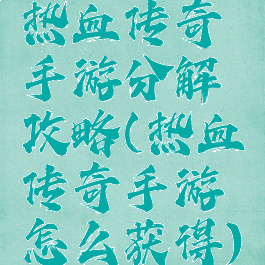 热血传奇
手游分解
攻略(热血
传奇手游
怎么获得)